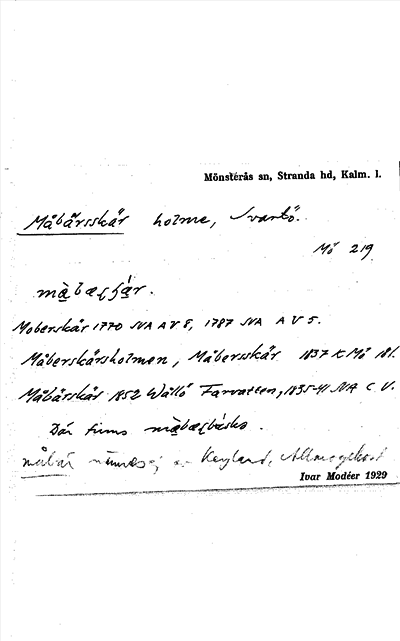 Mönsterås sn, Stranda hd, Kalm. l.
Måbärsskär holme, Svartö.
Mö 219
måbæʂʃär.
Moberskär 1770 SVA A V 8, 1787 SVA A V 5.
Måberskärsholmen, Måbersskär 1837 K Mö 181.
Måbärskär 1852 Wållö Farvatten, 1835-41 SVA C. V.
Där finns
måbär nämnes ej av Keyland,
Ivar Modéer 1929